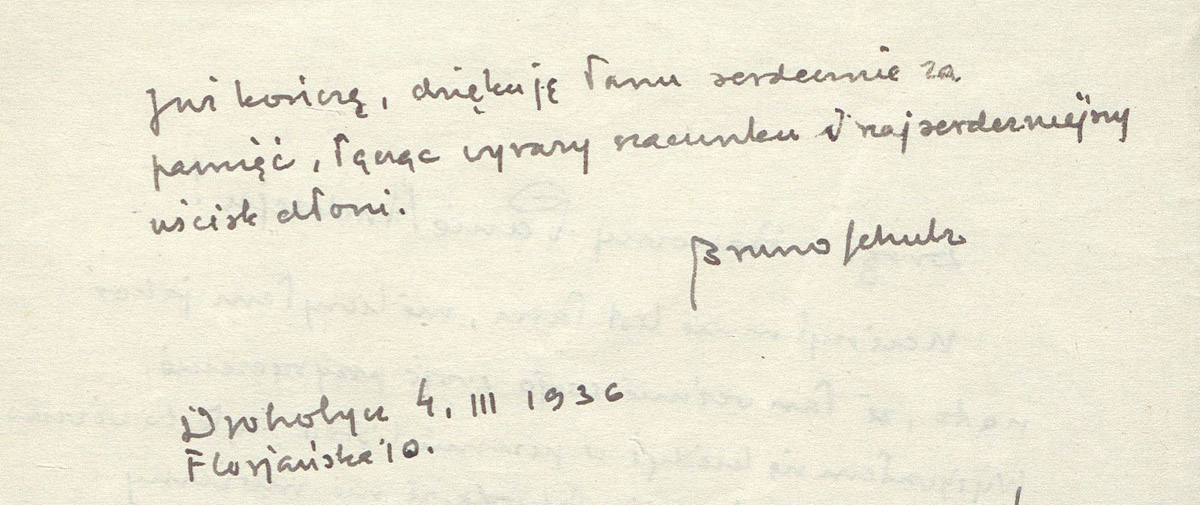 Już kończę, dziękuję Panu serdecznie za
pamięć, łącząc wyrazy szacunku i najserdeczniejszy
uścisk dłoni.
Bruno Schulz
Drohobycz 4. III 1936
Florjańska 10.